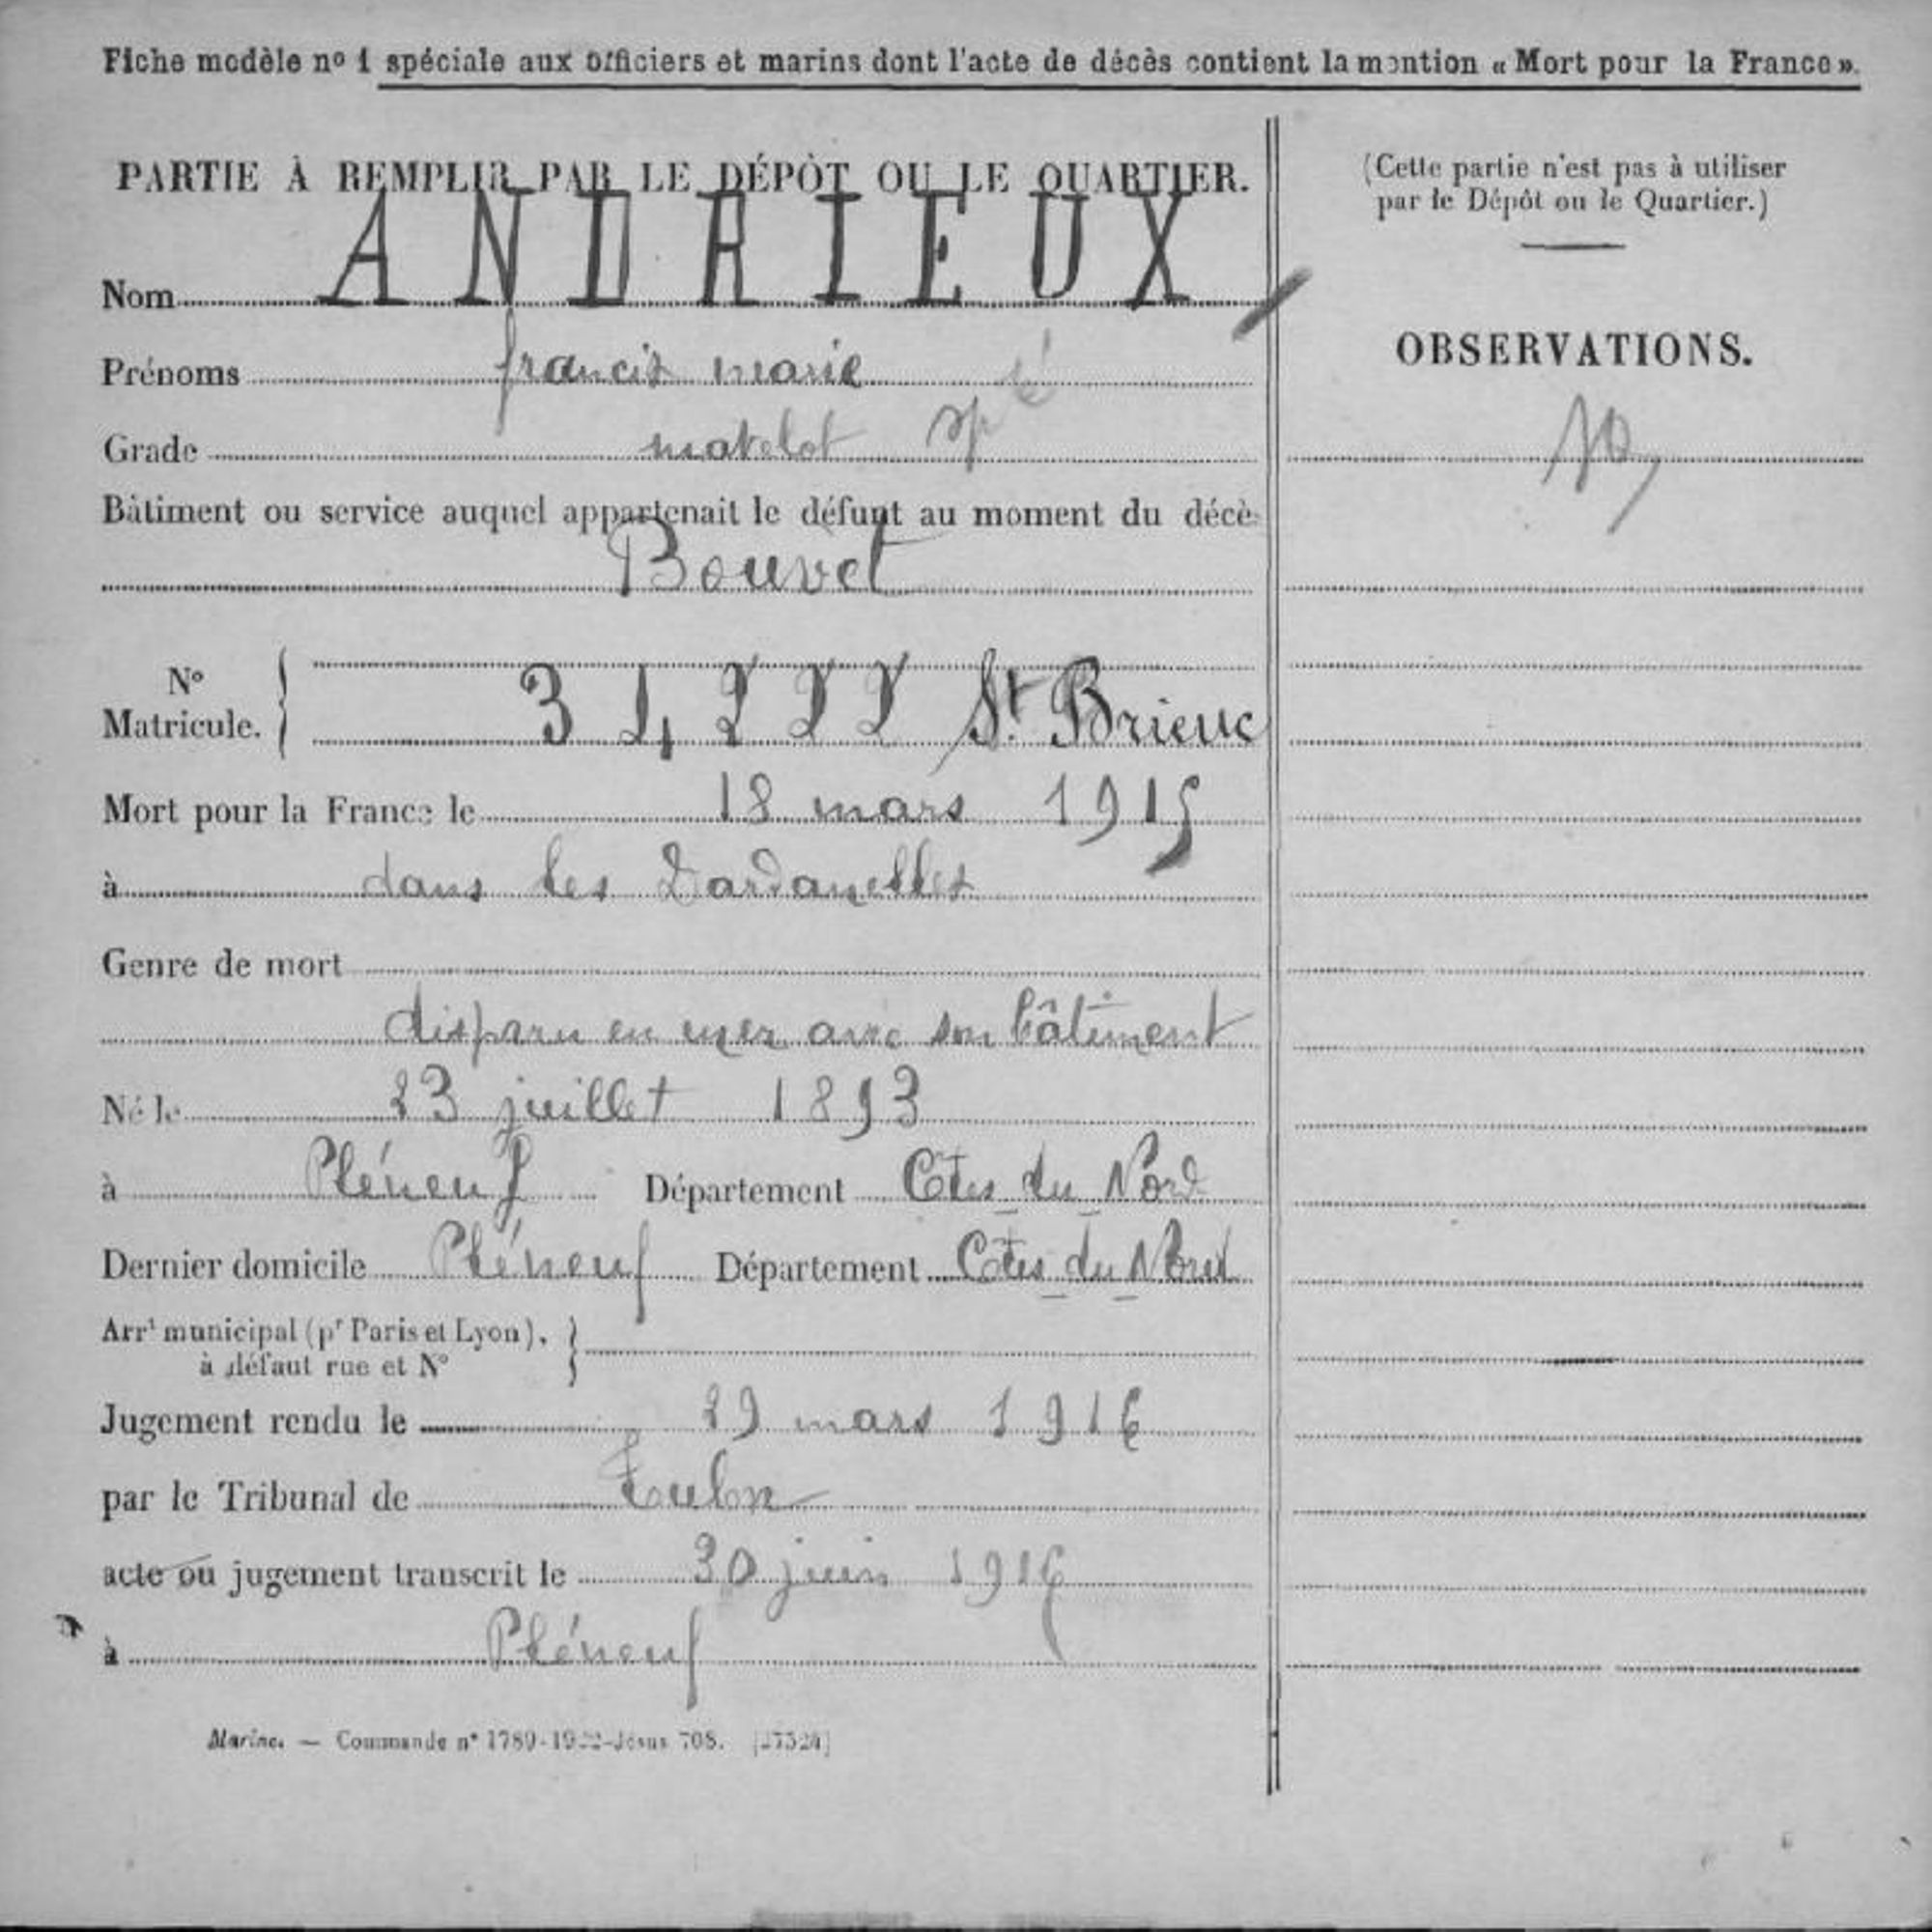 Fiche modèle nº 1 spéciale aux Officiers et marins dont l'acte de décès contient la mention « Mort pour la France ».
PARTIE À REMPLIR PAR LE DÉPÔT OU LE QUARTIER.
Nom ANDRIEUX
Prénoms francis marie
Grade matelot
Bâtiment ou service auquel appartenait le défunt au moment du décè
Bouvet
Nº
Matricule. 34222 St. Brieuc
Mort pour la France le 18 mars 1915
à dans les Dardanelles
Genre de mort
disparu en mer avec son bâtiment
Né le 23 juillet 1893
à Pléneuf Département Côtes du Nord
Dernier domicile Pléneuf Département Côtes du Nord
Arrt municipal (pr Paris et Lyon),
à défaut rue et Nº
Jugement rendu le 29 mars 1916
par le Tribunal de Toulon
acte ou jugement transcrit le 30 juin 1916
à Pléneuf
Marine. — Commande nº 1789-1922-Jésus 708.
(Cette partie n'est pas à utiliser
par le Dépôt ou le Quartier.)
OBSERVATIONS.